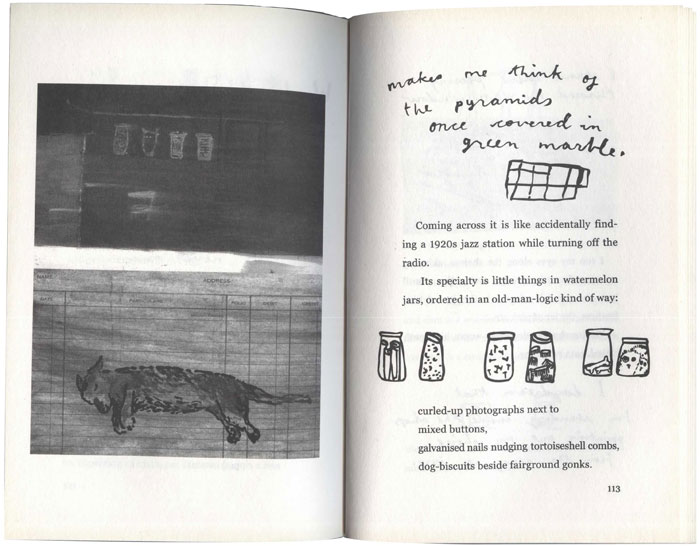 NAME
ADDRESS
DATE
makes me think of
the pyramids
once covered in
green marble.
Coming across it is like accidentally find-
ing a 1920s jazz station while turning off the
radio.
Its specialty is little things in watermelon
jars, ordered in an old-man-logic kind of way:
curled-up photographs next to
mixed buttons,
galvanised nails nudging tortoiseshell combs,
dog-biscuits beside fairground gonks.
113